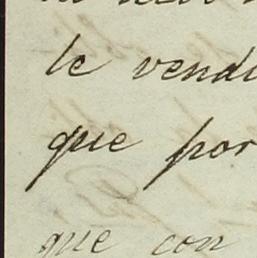 le vendi
que por
que con